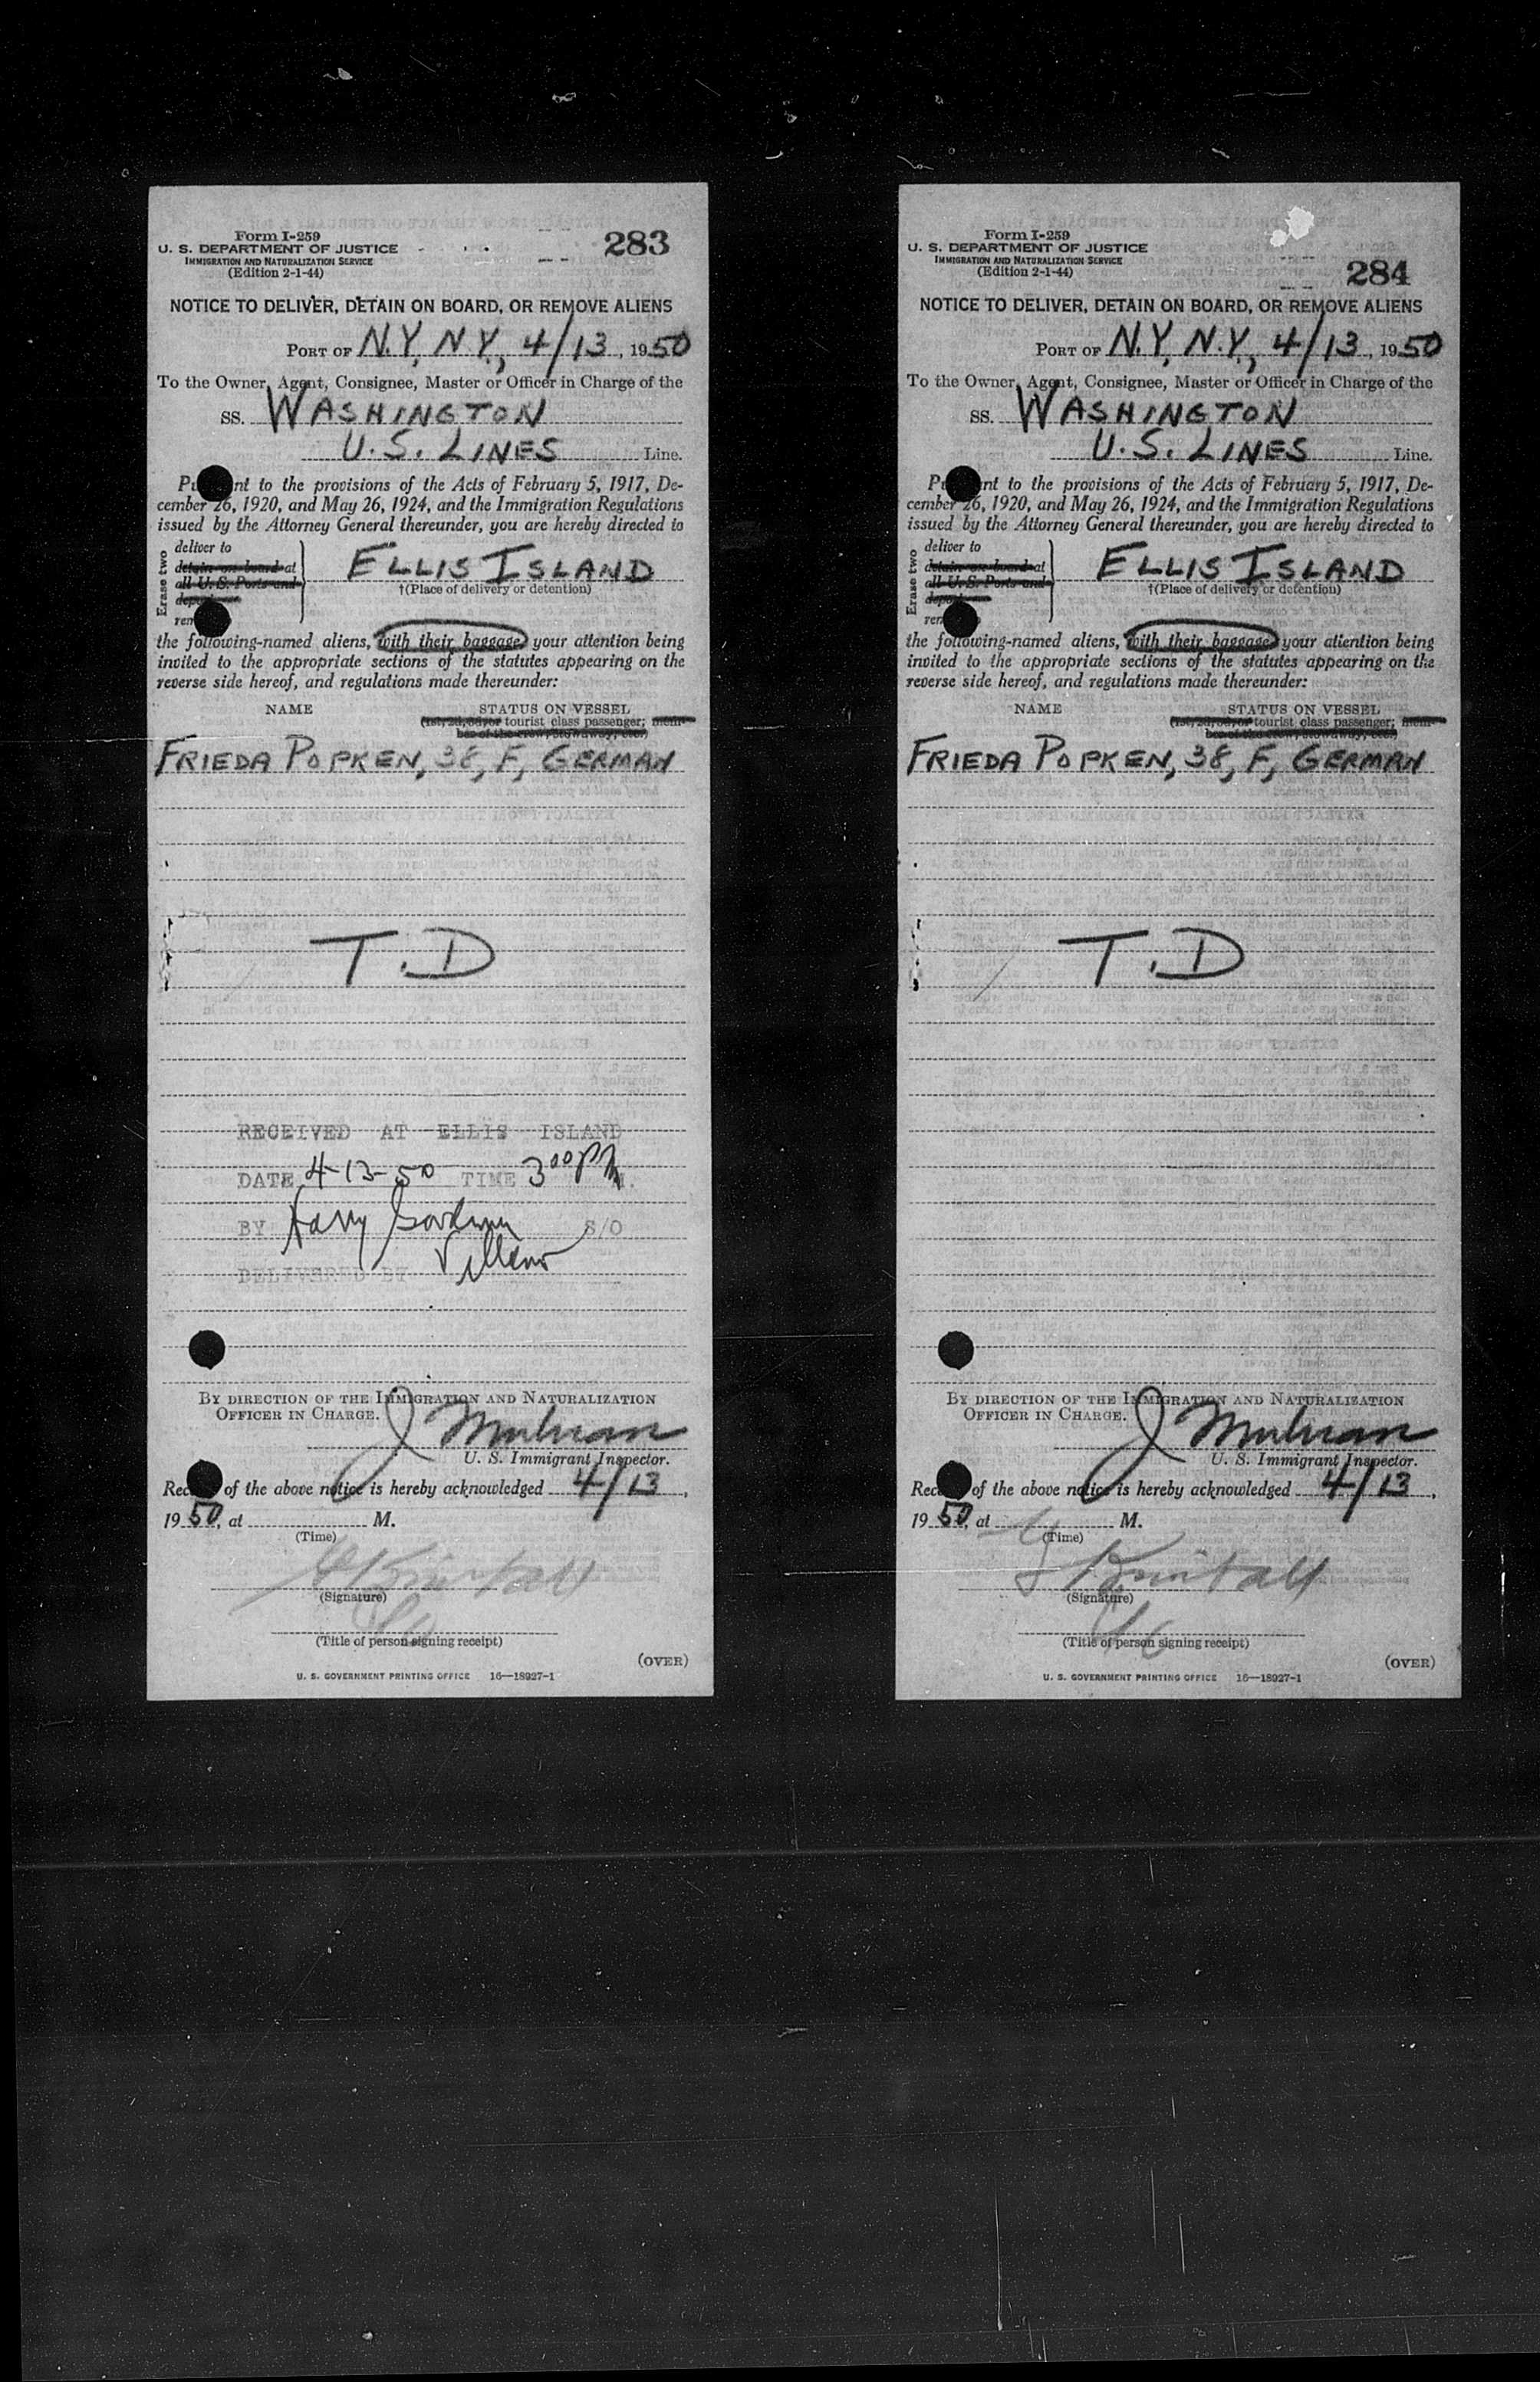 Form I-259
U. S. DEPARTMENT OF JUSTICE
IMMIGRATION AND NATURALIZATION SERVICE
(Edition 2-1-44)
283
NOTICE TO DELIVER, DETAIN ON BOARD, OR REMOVE ALIENS
PORT OF N.Y, N.Y., 4/13, 1950
To the Owner, Agent, Consignee, Master or Officer in Charge of the
SS. WASHINGTON
U.S. LINES Line.
nt to the provisions of the Acts of February 5, 1917, De-
cember 26, 1920, and May 26, 1924, and the Immigration Regulations
issued by the Attorney General thereunder, you are hereby directed to
Erase two
deliver to
detain on board at
all U. S. Ports and
ELLIS ISLAND
†(Place of delivery or detention)
the following-named aliens, with their baggage, your attention being
invited to the appropriate sections of the statutes appearing on the
reverse side hereof, and regulations made thereunder:
NAME STATUS ON VESSEL
tourist class passenger;
FRIEDA POPKEN, 38, F, GERMAN
T.D
RECEIVED AT ELLIS ISLAND
DATE 4-13-50 TIME 3 00 PM M.
BY Harry S/O
DELIVERED BY
BY DIRECTION OF THE IMMIGRATION AND NATURALIZATION
OFFICER IN CHARGE.
J
U. S. Immigrant Inspector.
of the above notice is hereby acknowledged 4/13,
1950, at M.
(Time)
(Signature)
(Title of person signing receipt)
(OVER)
U. S. GOVERNMENT PRINTING OFFICE 16—18927-1
Form I-259
U. S. DEPARTMENT OF JUSTICE
IMMIGRATION AND NATURALIZATION SERVICE
(Edition 2-1-44)
284
NOTICE TO DELIVER, DETAIN ON BOARD, OR REMOVE ALIENS
PORT OF N.Y, N.Y., 4/13, 1950
To the Owner, Agent, Consignee, Master or Officer in Charge of the
SS. WASHINGTON
U.S. LINES Line.
nt to the provisions of the Acts of February 5, 1917, De-
cember 26, 1920, and May 26, 1924, and the Immigration Regulations
issued by the Attorney General thereunder, you are hereby directed to
Erase two
deliver to
detain on board at
all U. S. Ports and
ELLIS ISLAND
†(Place of delivery or detention)
the following-named aliens, with their baggage, your attention being
invited to the appropriate sections of the statutes appearing on the
reverse side hereof, and regulations made thereunder:
NAME STATUS ON VESSEL
tourist class passenger;
FRIEDA POPKEN, 38, F, GERMAN
T.D
BY DIRECTION OF THE IMMIGRATION AND NATURALIZATION
OFFICER IN CHARGE.
J
U. S. Immigrant Inspector.
of the above notice is hereby acknowledged 4/13,
1950, at M.
(Time)
(Signature)
(Title of person signing receipt)
(OVER)
U. S. GOVERNMENT PRINTING OFFICE 16—18927-1